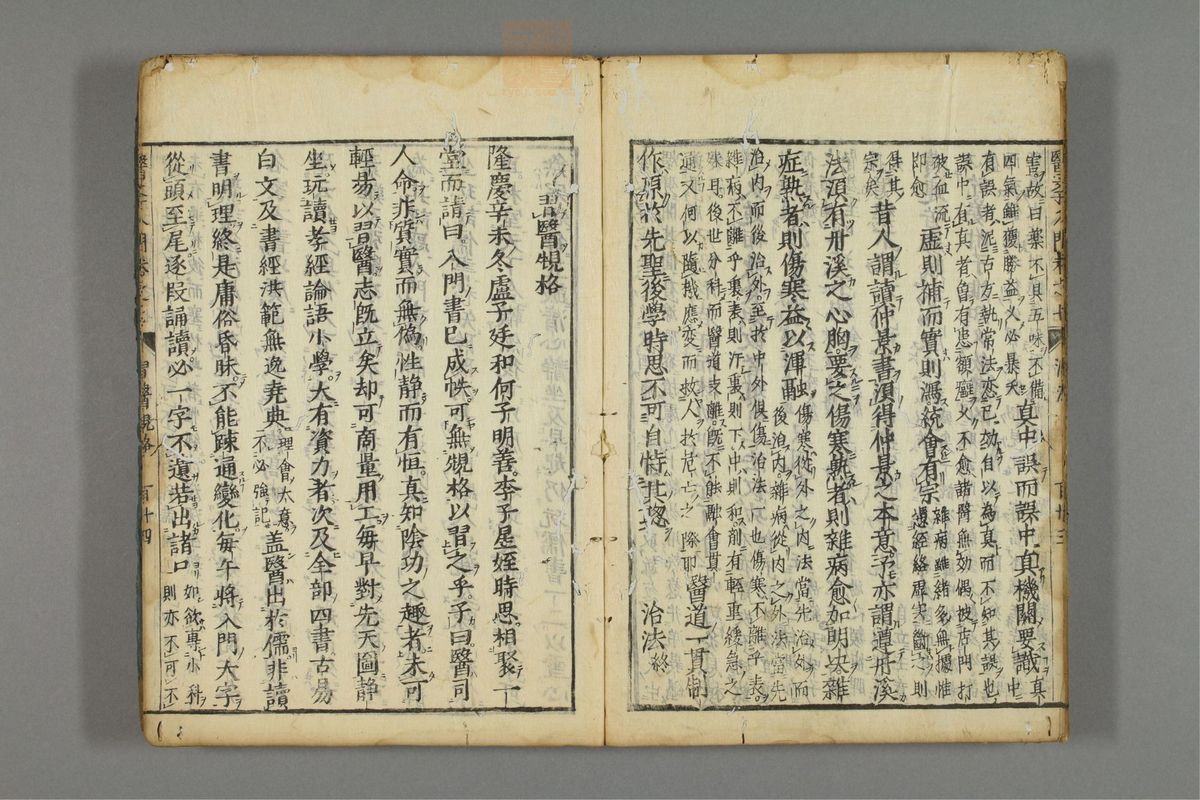 害故曰藥不具五味不備
四氣雖獲勝益久必暴夭
真中誤而誤中真機關要識
真中
有誤者泥古方執常法亦已効自以為真而不知其誤也
誤中有真者曾有患額癬久不愈諸醫無効偶被店門打
破血流而
即愈
虛則補而實則瀉統會有宗
雜病雖緒多無據惟
憑經絡虛实斷之則
得其
宗矣
昔人謂讀仲景書須得仲景之本意予亦謂遵丹溪
法須有丹溪之心胸要之傷寒熟者則雜病愈如明块雜
症熟者則傷寒益以渾融
傷寒從外之内法當先治外而
後治内雜病從内之外法當先
治内而後治外至於中外俱傷治法一也傷寒不離乎表
雜病不離乎裏表則汗裏則下中則和劑有輕重緩急之
殊耳後世分科而醫道支離既不能融會貫
通又何以隨機應変而救人於危亡之際耶
醫道一貫制
作原於先聖後學時思不可自恃其聰
治法終
習醫規格
隆慶辛未冬盧子廷和何子明善李子星姪時思相聚一
堂而請曰入門書已成帙可無規格以習之乎子曰醫司
人命非質實而無偽性静而有恒真知陰功之趣者未可
輕易以習醫志既立矣却可商量用工每早對先天圖静
坐玩讀孝經論語小學大有資力者次及全部四書古易
白文及書經洪範無逸堯典
理會大意
不必強記
盖醫出於儒非讀
書明理終是庸俗昏昧不能疎通變化每午將入門大字
從頭至尾逐段誦讀必一字不遺若出諸口
如欲專小科
則亦不可不
習醫規格
百十四